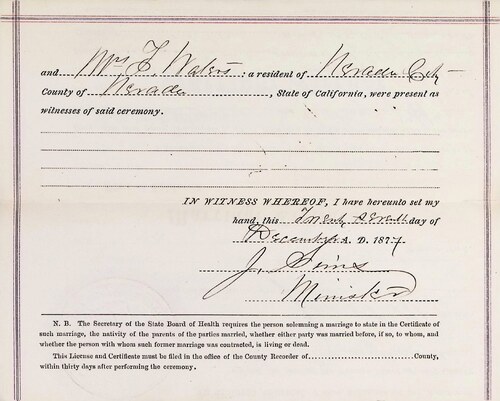 and Mrs F. Waters a resident of Nevada City
County of Nevada, State of California, were present as
witnesses of said ceremony.
IN WITNESS WHEREOF, I have hereunto set my
hand, this Twenty Seventh day of
December A. D. 1877
J. Sims
Minister
N. B. The Secretary of the State Board of Health requires the person solemning a marriage to state in the Certificate of
such marriage, the nativity of the parents of the parties married, whether either party was married before, if so, to whom, and
whether the person with whom such former marriage was contracted, is living or dead.
This License and Certificate must be filed in the office of the County Recorder of County,
within thirty days after performing the ceremony.